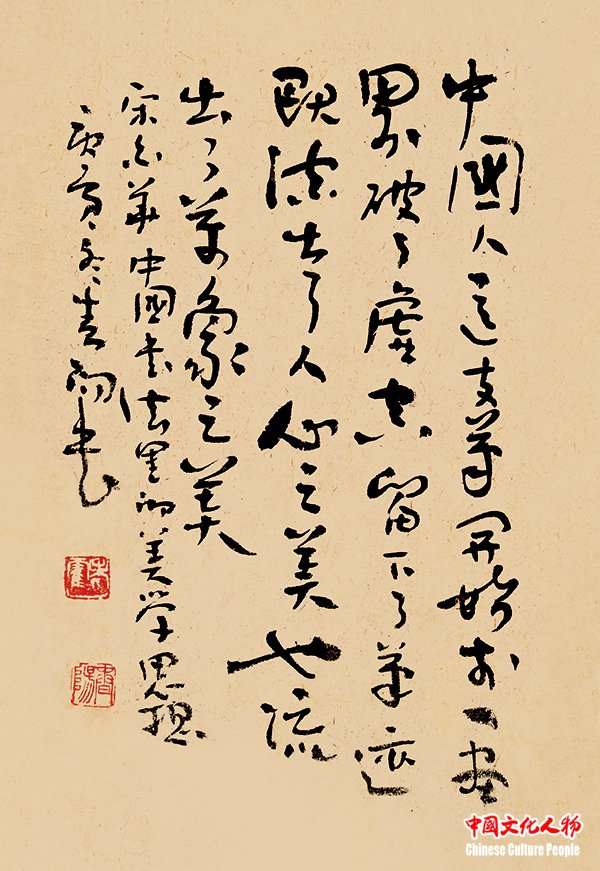 中國人這支筆開始於一畫
界破了虛空留下了筆迹
既流出了人心之美也流
出了萬象之美
宗白華中國書法里的美學思想
庚寅冬書
中國文化人物
Chinese Culture People